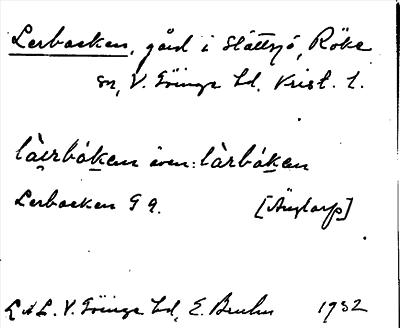 Lerbacken, gård i Slättsjö, Röke
sn, V. Göinge hd. Krist. l.
làerbák̲en även: làrbák̲en
Lerbacken G 9. [Änglarp]
V. Göinge hd, E. Bruhn 1932